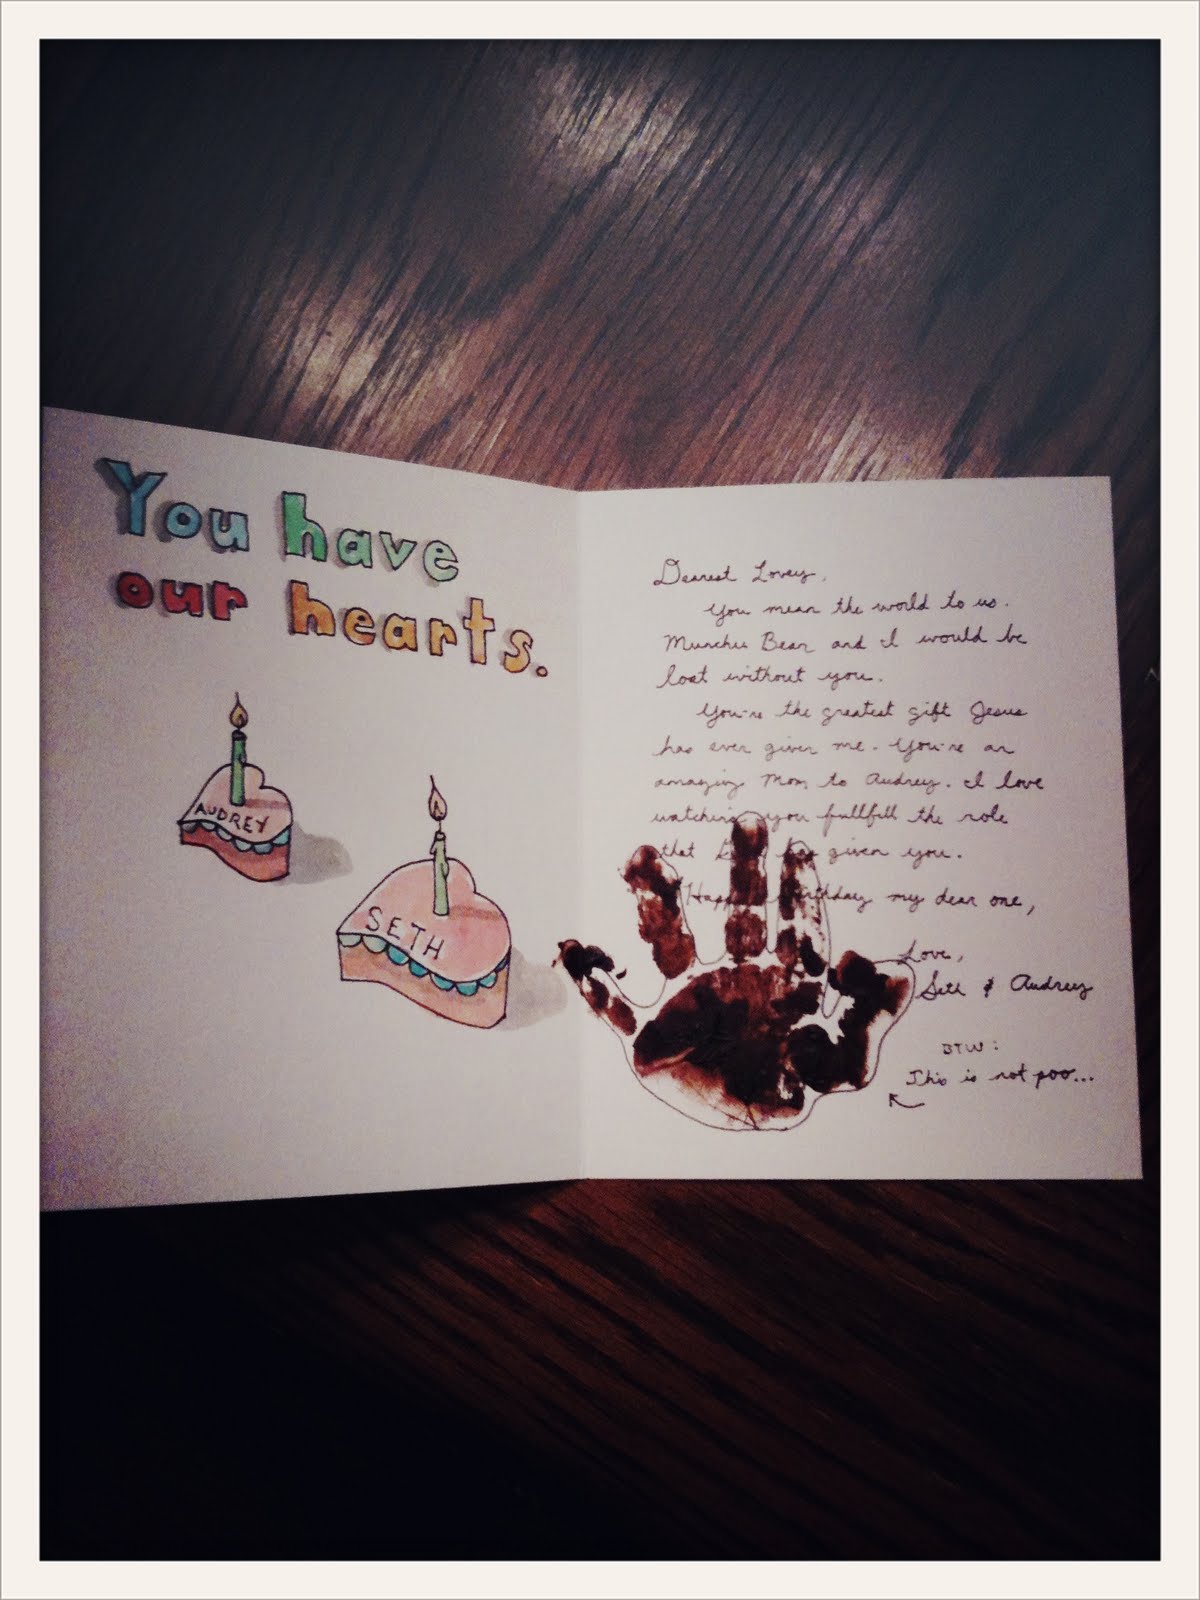 You have
our hearts.
AUDREY
SETH
Dearest Lovey,
You mean the world to us.
Munchie Bear and I would be
lost without you.
You're the greatest gift Jesus
has ever given me. You're an
amazing Mom to Audrey. I love
watching you fullfill the role
that has given you.
Happy Birthday my dear one,
Love,
Seth & Audrey
BTW:
This is not poo...